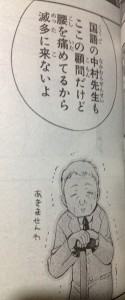 国語の中村先生も
ここの顧問だけど
腰を痛めてるから
滅多に来ないよ
あきませんわ